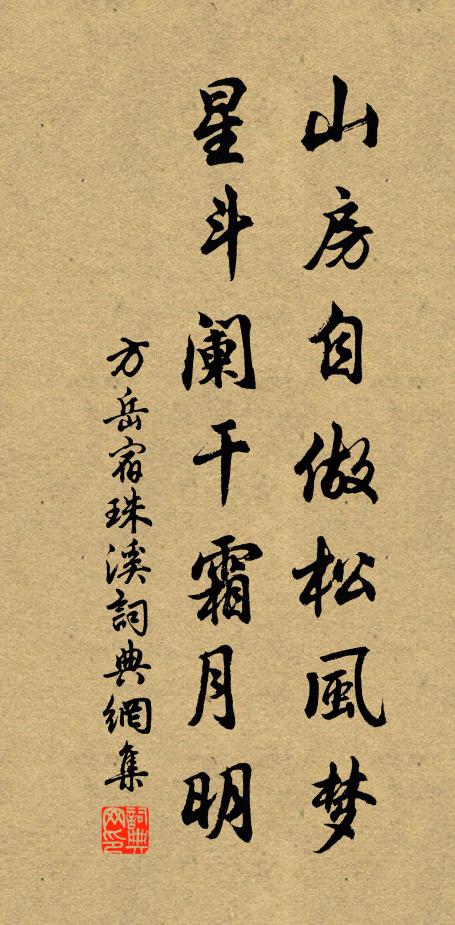 山房自做松風梦
星斗阑干霜月明
方岳宿珠溪詞典網集
詞典网印